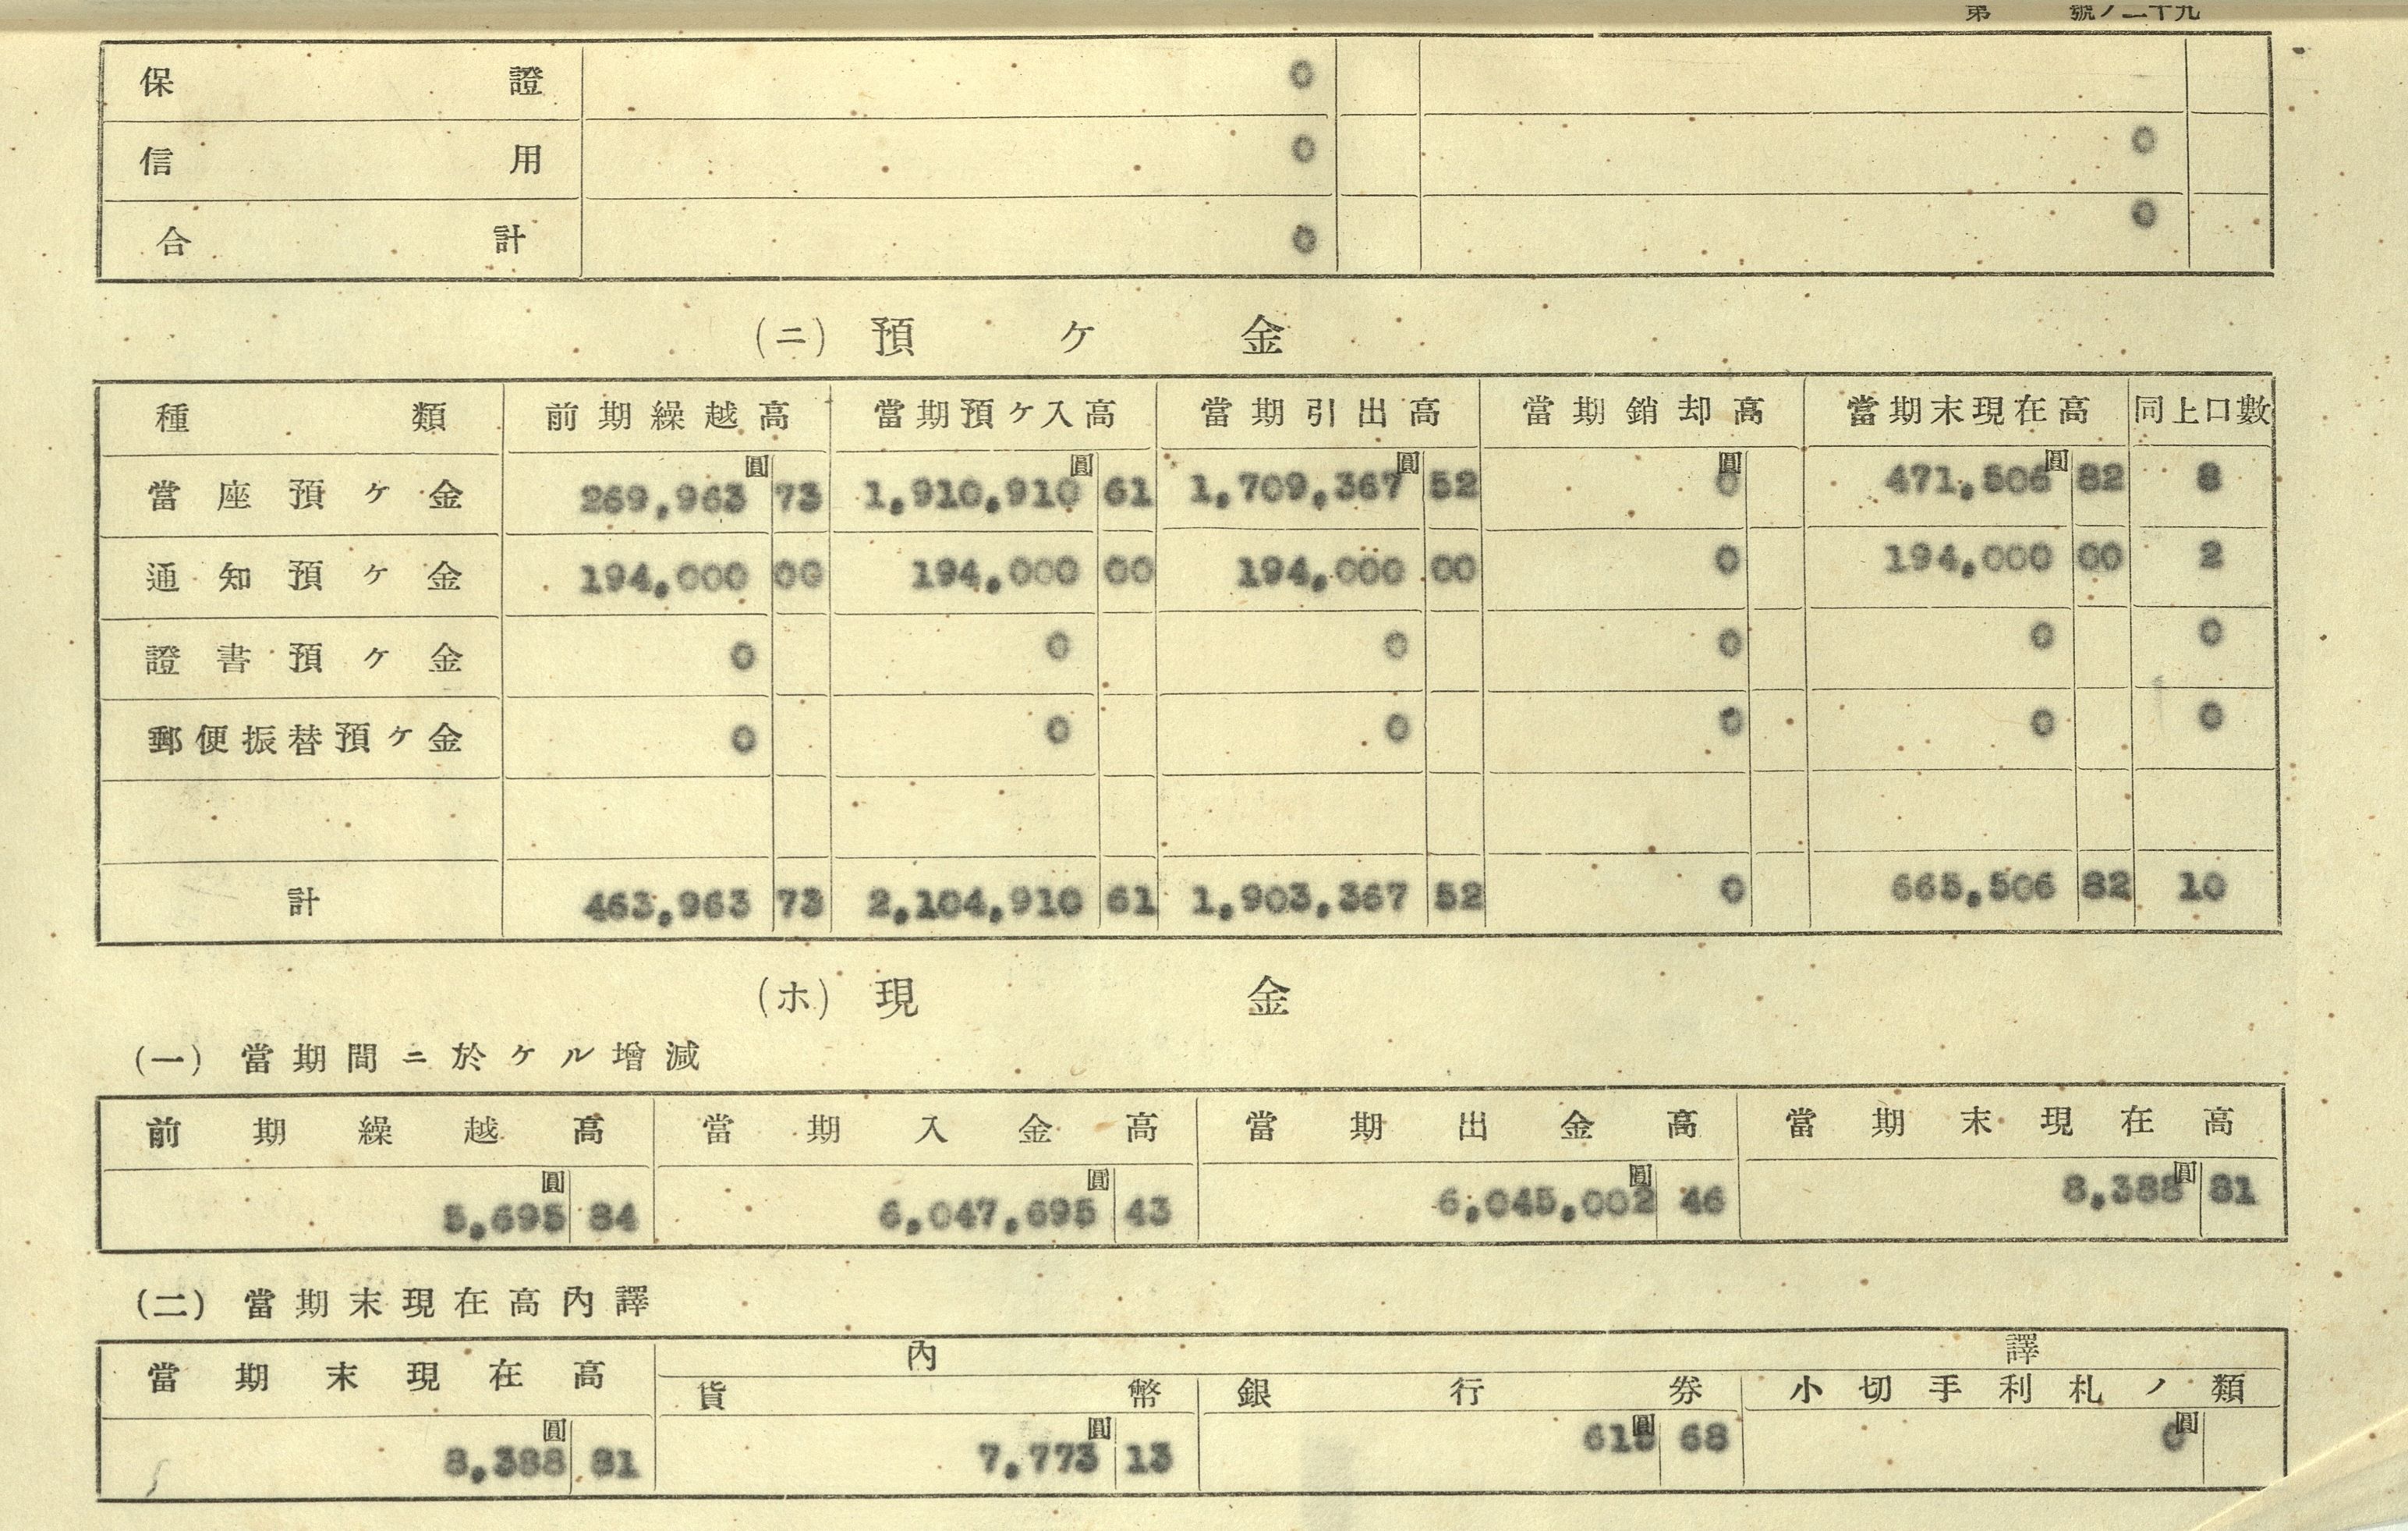 第 號ノ二十九
保證 0
信用 0 0
合計 0 0
(ニ) 預ヶ金
種類 前期繰越高 當期預ヶ入高 當期引出高 當期銷却高 當期末現在高 同上口數
當座預ヶ金 269,963圓 73 1,910,910圓 61 1,709,367圓 52 0圓 471,506圓 82 8
通知預ヶ金 194,000 00 194,000 00 194,000 00 0 194,000 00 2
證書預ヶ金 0 0 0 0 0 0
郵便振替預ヶ金 0 0 0 0 0 0
計 463,963 73 2,104,910 61 1,903,367 52 0 665,506 82 10
(ホ) 現金
(一) 當期間ニ於ケル增減
前期繰越高 當期入金高 當期出金高 當期末現在高
5,695圓 84 6,047,695圓 43 6,045,002圓 46 8,388圓 81
(二) 當期末現在高內譯
當期末現在高 內譯
貨幣 銀行券 小切手利札ノ類
8,388圓 81 7,773圓 13 615圓 68 0圓